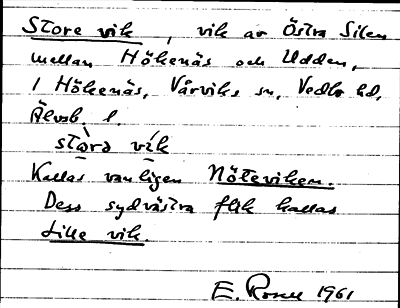 Store vik, vik av Östra Silen
mellan Hökenäs och Udden,
i Hökenäs, Vårviks sn, Vedbo hd,
Älvsb. l.
stòra vík
Kallas vanligen Nöteviken.
Dess sydvästra flik kallas
Lille vik.
E. Rosell 1961